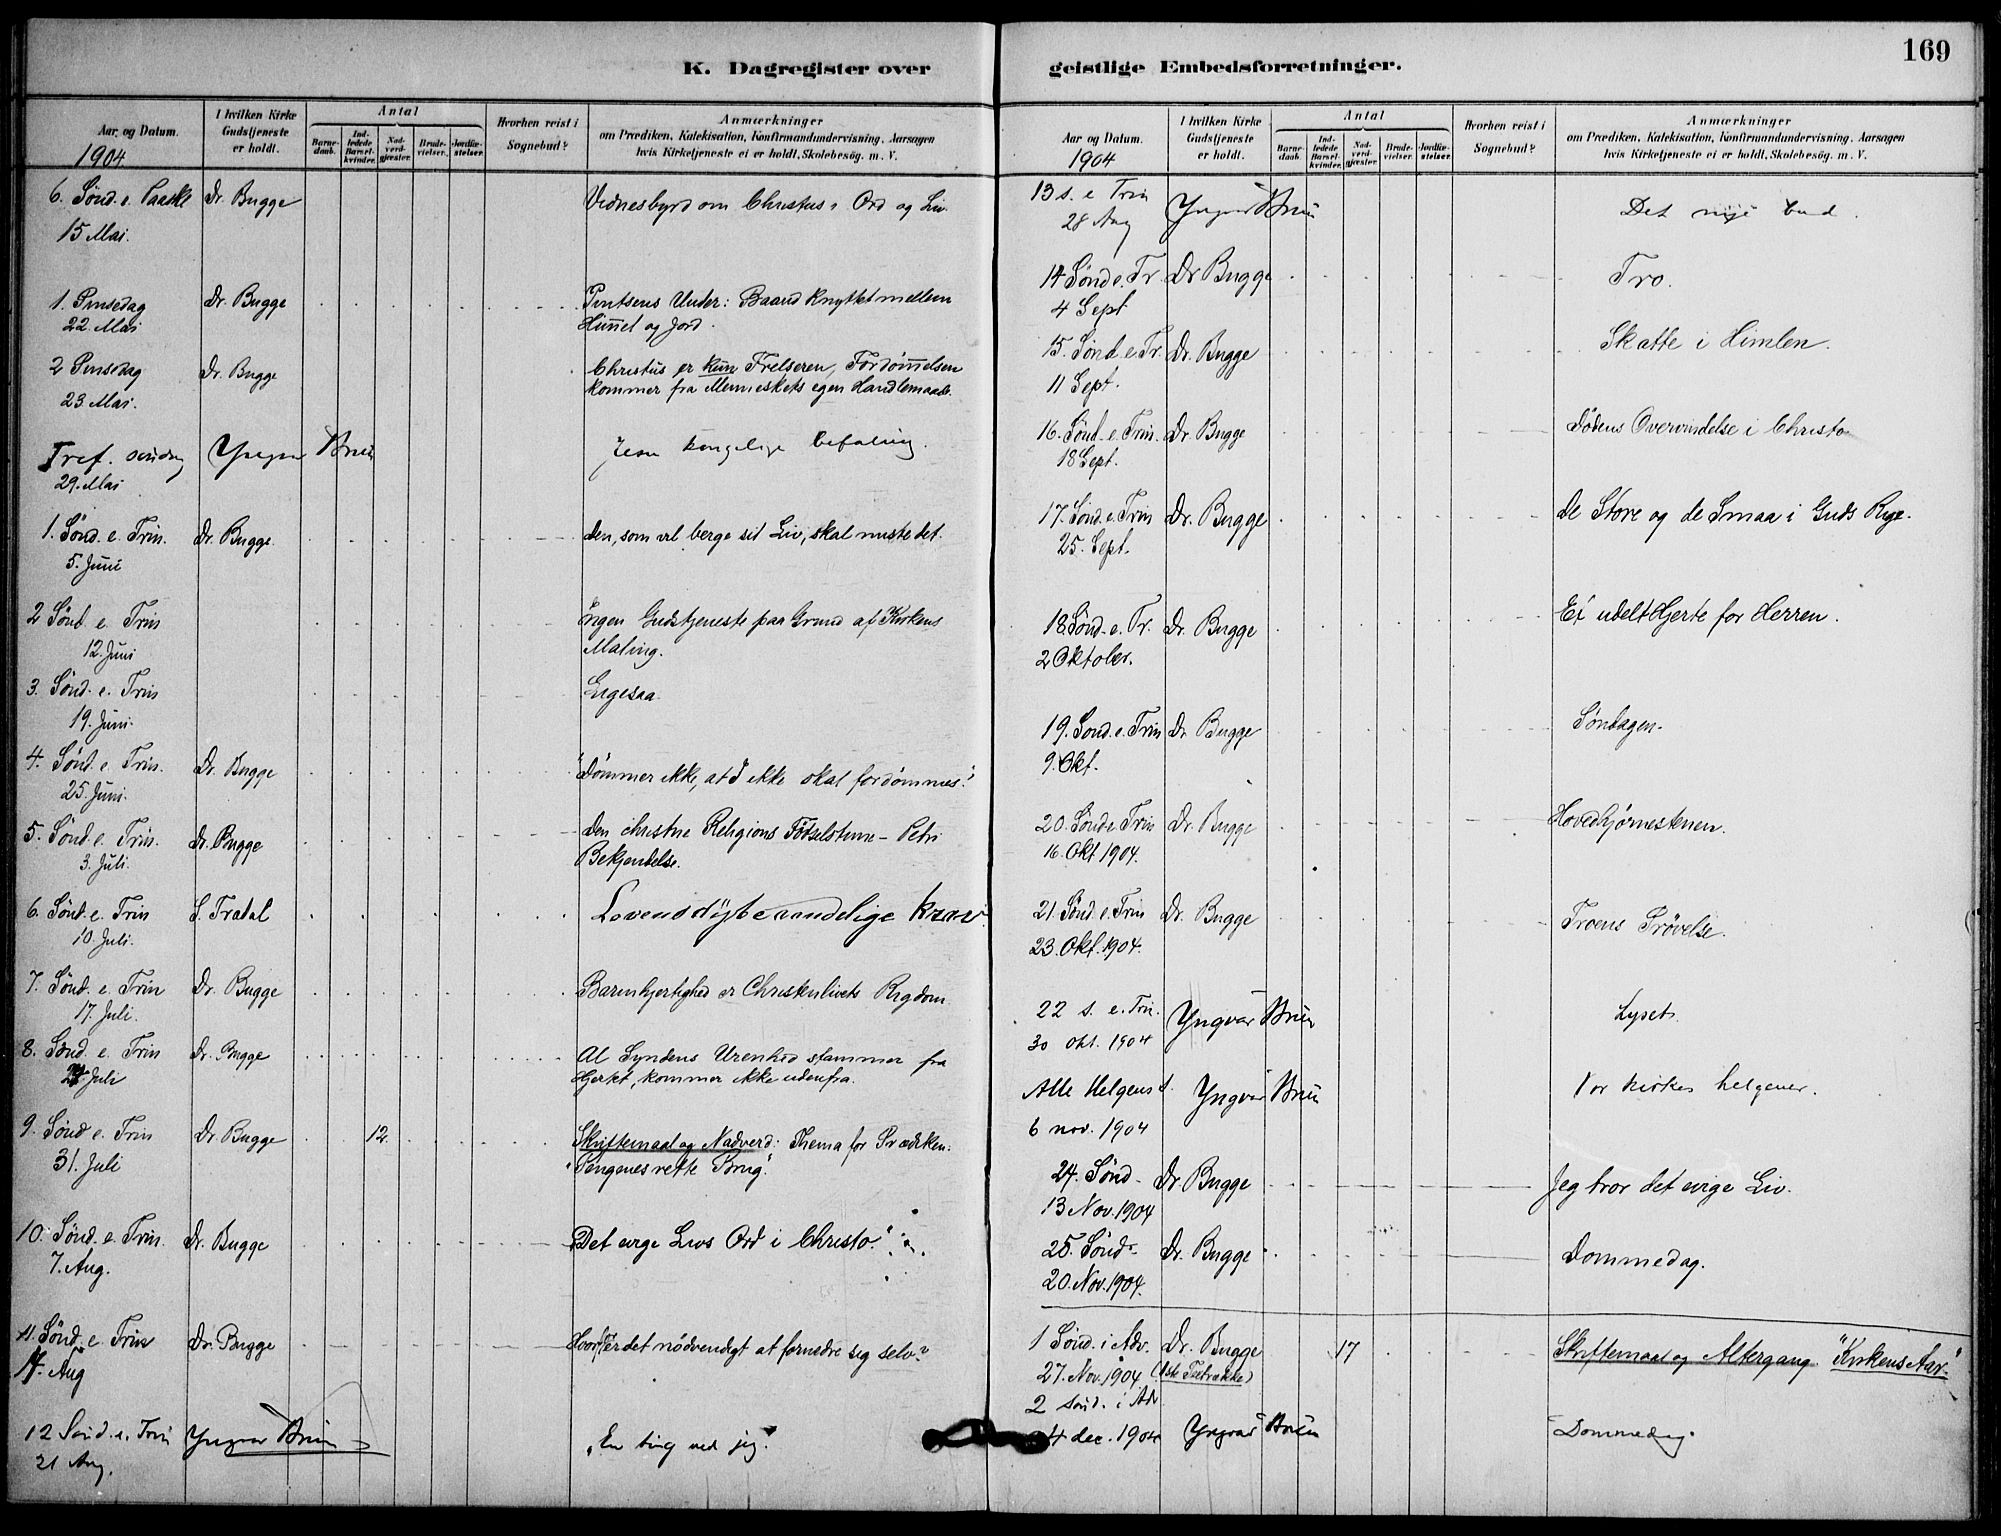 169
K. Dagregister over
geistlige Embedsforretninger.
Aar og Datum.
1904
I hvilken Kirke Gudstjeneste er holdt.
Antal
Barnedaab.
Indledede Barselkvinder.
Nadverdgjester.
Brudevielser.
Jordfæstelser.
Hvorhen reist i Sognebud?
Anmærkninger
om Prædiken, Katekisation, Konfirmandundervisning, Aarsagen
hvis Kirketjeneste ei er holdt, Skolebesøg. m. V.
6. Sønd. e. Paaske Dr. Bugge Vidnesbyrd om Christus i Ord og Liv.
15 Mai.
1. Pinsedag Dr. Bugge Pintsens Under: Baand knyttet mellem
22. Mai Himmel og Jord.
2 Pinsedag Dr. Bugge Christus er kun Frelseren, Fordømmelsen
23. Mai. kommer fra Menneskets egen Handlemaade.
Tref. søndag Yngvar Brun Jesu kongelige befaling.
29. Mai
1. Sønd. e. Trin. Dr. Bugge Den, som vil berge sit Liv, skal miste det.
5. Juni
2 Sønd. e. Trin Ingen Gudstjeneste paa Grund af Kirkens
12. Juni Maling.
3. Sønd. e. Trin Ligesaa
19. Juni.
4. Sønd. e. Trin. Dr. Bugge "Dømmer ikke, at I ikke skal fordømmes."
25. Juni.
5. Sønd. e. Trin. Dr. Bugge Den christne Religions Fødselstime - Petri
3. Juli. Bekjendelse.
6. Sønd. e. Trin S. Tradal Lovens aandelige krav
10. Juli.
7. Sønd. e. Trin Dr. Bugge Barmhjertighed er Christenlivets Rigdom
17. Juli.
8. Sønd. e. Trin Dr. Bugge Al Syndens Urenhed stammer fra
24 Juli Hjertet, kommer ikke udenfra.
9. Sønd e. Trin Dr. Bugge 12. Skriftemaal og Nadverd: Thema for Prædiken:
31. Juli "Pengenes rette Brug."
10. Sønd. e. Trin. Dr. Bugge "Det evige Livs Ord i Christo."
7. Aug.
11. Sønd. e. Trin Dr. Bugge Hvorfor er det nødvendigt at fornedre sig selv?
14. Aug
12 Sønd. e. Trin Yngvar Brun "En ting ved jeg."
21 Aug.
Aar og Datum.
1904
I hvilken Kirke Gudstjeneste er holdt.
Antal
Barnedaab.
Indledede Barselkvinder.
Nadverdgjester.
Brudevielser.
Jordfæstelser.
Hvorhen reist i Sognebud?
Anmærkninger
om Prædiken, Katekisation, Konfirmandundervisning, Aarsagen
hvis Kirketjeneste ei er holdt, Skolebesøg. m. V.
13 s. e Trin Yngvar Brun Det nye bud.
28 Aug
14 Sønd e. Tr. Dr Bugge Tro.
4 Sept
15. Sønd. e. Tr. Dr. Bugge Skatte i Himlen.
11 Sept.
16. Sønd. e. Trin. Dr. Bugge Dødens Overvindelse i Christo
18 Sept.
17. Sønd. e. Trin Dr. Bugge De Store og de Smaa i Guds Rige.
25. Sept.
18. Sønd. e. Tr. Dr. Bugge Et udelt Hjerte for Herren.
2 Oktober.
19. Sønd. e. Trin Dr. Bugge Søndagen.
9. Okt.
20. Sønd e Trin Dr. Bugge Hovedhjørnestenen.
16. Okt 1904.
21. Sønd. e. Trin Dr. Bugge Troens Prøvelse.
23. Okt. 1904.
22 s. e. Trin. Yngvar Brun Lyset.
30 okt. 1904
Alle Helgens d. Yngvar Brun Vor kirkes helgener.
6 nov. 1904
24. Sønd- Dr. Bugge Jeg tror det evige Liv.
13 Nov. 1904
25. Sønd- Dr. Bugge Dommedag.
20. Nov. 1904.
1 Sønd. i Adv. Dr. Bugge 17 Skriftemaal og Altergang. "Kirkens Aar."
27. Nov. 1904 (1ste Textrække)
2 sønd. i Adv
4 dec. 1904 Yngvar Brun Dommedag.